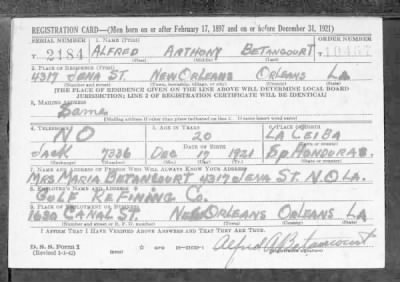 REGISTRATION CARD—(Men born on or after February 17, 1897 and on or before December 31, 1921)
SERIAL NUMBER 1. NAME (Print) ORDER NUMBER
T 2184 ALFRED ANTHONY BETANCOURT T 10457
(First) (Middle) (Last)
2. PLACE OF RESIDENCE (Print)
4317 JENA ST. NEW ORLEANS ORLEANS LA
(Number and street) (Town, township, village, or city) (County) (State)
[THE PLACE OF RESIDENCE GIVEN ON THE LINE ABOVE WILL DETERMINE LOCAL BOARD
JURISDICTION; LINE 2 OF REGISTRATION CERTIFICATE WILL BE IDENTICAL]
3. MAILING ADDRESS
Same
[Mailing address if other than place indicated on line 2. If same insert word same]
4. TELEPHONE 5. AGE IN YEARS 6. PLACE OF BIRTH
NO 20 LA CEIBA
DATE OF BIRTH
JACK 7336 DEC 17 1921 SP. HONDURAS
(Exchange) (Number) (Mo.) (Day) (Yr.) (State or country)
7. NAME AND ADDRESS OF PERSON WHO WILL ALWAYS KNOW YOUR ADDRESS
MRS MARIA BETANCOURT 4317 JENA ST. N.O. LA.
8. EMPLOYER'S NAME AND ADDRESS
GULF REFINING CO.
9. PLACE OF EMPLOYMENT OR BUSINESS
1630 CANAL ST. NEW ORLEANS ORLEANS LA
(Number and street or R. F. D. number) (Town) (County) (State)
I AFFIRM THAT I HAVE VERIFIED ABOVE ANSWERS AND THAT THEY ARE TRUE.
D. S. S. FORM 1
(Revised 1-1-42) (over) GPO Alfred A Betancourt
(Registrant's signature)